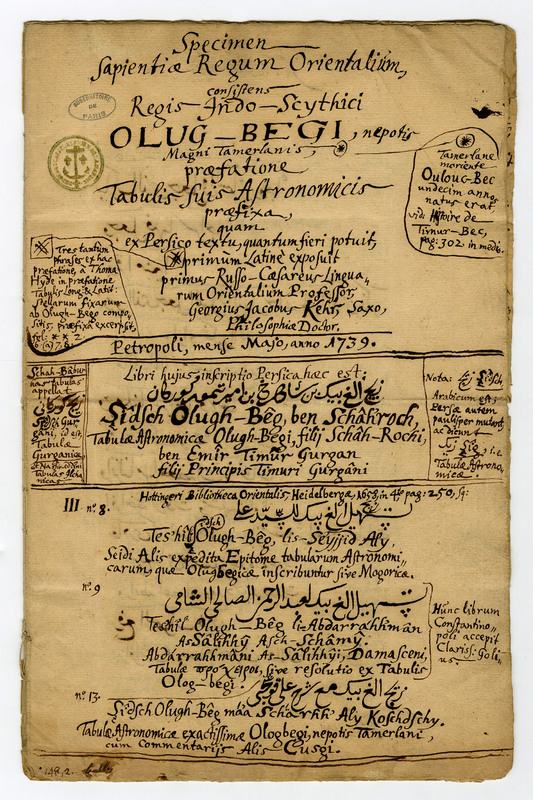 Specimen
Sapientiæ Regum Orientalium,
consistens
Regis Indo-Scythici
OLUG-BEGI, nepotis
Magni Tamerlanis,
præfatione
Tabulis suis Astronomicis
præfixa,
quam
ex Persico textu, quantum fieri potuit,
primum Latine exposuit
primus Russo-Cæsareus Lingua-
rum Orientalium Professor,
Georgius Jacobus Kehr, Saxo,
Philosophiæ Doctor.
Petropoli, mense Majo, anno 1739.
OBSERVATOIRE
DE
PARIS
Tamerlane
moriente
Ouloug-Bec
undecim annos
natus erat,
vid. Histoire de
Timur-Bec,
pag: 302 in medio.
Tres tantum
phrases ex hac
præfatione, a Thoma
Hyde in præfatione
Tabulis Long: & Latit:
stellarum fixarum
ab Olugh-Beigo compo-
sitis, præfixa excerpsit,
Schah-Bâbur
has tabulas
appellat
Sidsi Gur
gâni, id est,
Tabulæ
Gurganicæ,
Libri hujus inscriptio Persica hæc est:
زيج الغ بيك بن شاهرخ بن امير تيمور كوركان
Sidsch Olugh-Bêg, ben Schâhroch,
Tabulæ Astronomicæ Olugh-Begi, filij Schâh-Rochi,
ben Emir Timur Gurgan
filij Principis Timuri Gurgâni
Nota: زيج Sidsch
Arabicum est,
Persæ autem
paulisper mutant,
ac dicunt
Tabulæ Astrono-
micæ.
Hottingeri Bibliotheca Orientalis Heidelbergæ, 1658, in 4to pag: 250, sq:
III nº. 8.
تسهيل الغ بيك للسيد علي
Tes'hil Sidsch Olugh-Bêg, lis-Seyjid Aly,
Seidi Alis expedita Epitome tabularum Astronomi-
carum, quæ Olugbegicæ inscribuntur sive Mogoricæ.
nº. 9
تسهيل الغ بيك لعبد الرحمن الصالحي الشامي
Tes'hîl Olugh-Bêg li-Abdarrahhmân
As-Sâlihhÿ Asch-Schâmy.
Abdarrahhmâni As-Sâlihhÿi, Damasceni,
Tabulæ προχειροι, sive resolutio ex Tabulis
Olog-begi.
Hunc librum
Constantino-
poli accepit
Clariss: Goli-
us.
nº. 13.
Sidsch Olugh-Bêg mâa Schârhh Aly Koschdschy.
Tabulæ Astronomicæ exactissimæ Ologbegi, nepotis Tamerlani,
cum commentarijs Alis Cusgi.